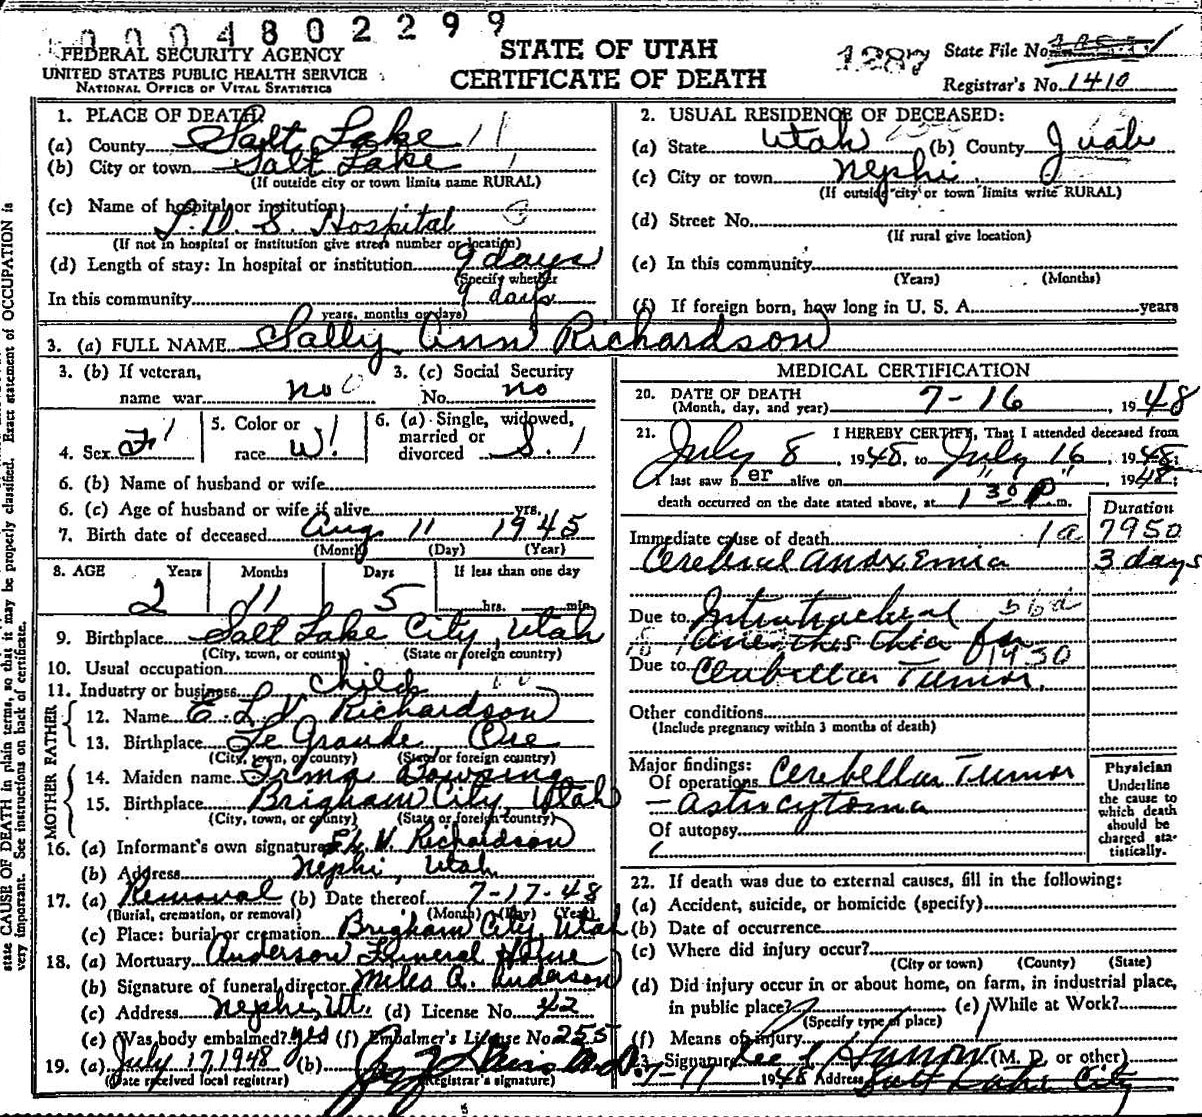 0004802299
FEDERAL SECURITY AGENCY
UNITED STATES PUBLIC HEALTH SERVICE
NATIONAL OFFICE OF VITAL STATISTICS
STATE OF UTAH
CERTIFICATE OF DEATH
1287
State File No.
Registrar's No. 1410
1. PLACE OF DEATH:
(a) County Salt Lake 11
(b) City or town Salt Lake
(If outside city or town limits name RURAL)
(c) Name of hospital or institution:
L. D. S. Hospital
(If not in hospital or institution give street number or location)
(d) Length of stay: In hospital or institution 9 days
(Specify whether
In this community 9 days
years, months or days)
2. USUAL RESIDENCE OF DECEASED:
(a) State Utah (b) County Juab
(c) City or town Nephi
(If outside city or town limits write RURAL)
(d) Street No.
(If rural give location)
(e) In this community
(Years) (Months)
(f) If foreign born, how long in U. S. A. years
3. (a) FULL NAME Sally Ann Richardson
3. (b) If veteran, name war no
3. (c) Social Security No. no
4. Sex F 1
5. Color or race W 1
6. (a) Single, widowed, married or divorced S. 1
6. (b) Name of husband or wife
6. (c) Age of husband or wife if alive yrs.
7. Birth date of deceased Aug 11 1945
(Month) (Day) (Year)
8. AGE Years Months Days If less than one day
2 11 5 hrs. min.
9. Birthplace Salt Lake City, Utah
(City, town, or county) (State or foreign country)
10. Usual occupation Child
11. Industry or business
FATHER
12. Name E. L. V. Richardson
13. Birthplace Le Grande, Ore
(City, town, or county) (State or foreign country)
MOTHER
14. Maiden name Irma
15. Birthplace Brigham City, Utah
(City, town, or county) (State or foreign country)
16. (a) Informant's own signature V. Richardson
(b) Address Nephi, Utah
17. (a) Removal (b) Date thereof 7-17-48
(Burial, cremation, or removal) (Month) (Day) (Year)
(c) Place: burial or cremation Brigham City, Utah
18. (a) Mortuary Anderson Funeral Home
(b) Signature of funeral director Miles A. Anderson
(c) Address Nephi, Ut. (d) License No. 42
(e) Was body embalmed? yes (f) Embalmer's License No. 255
19. (a) July 17, 1948 (b) M.D.
(Date received local registrar) (Registrar's signature)
MEDICAL CERTIFICATION
20. DATE OF DEATH
(Month, day, and year) 7-16, 1948
21. I HEREBY CERTIFY, That I attended deceased from
July 8, 1948, to July 16, 1948;
I last saw h er alive on " ", 1948;
death occurred on the date stated above, at 1 30 P m.
Duration
Immediate cause of death 1a 7950
Cerebral anoxemia 3 days
Due to Intratracheal
anesthisthia for
1930
Due to Cerebellar Tumor.
Other conditions
(Include pregnancy within 3 months of death)
Major findings:
Of operations Cerebellar Tumor
- astrocytoma
Of autopsy
Physician
Underline
the cause to
which death
should be
charged sta-
tistically.
22. If death was due to external causes, fill in the following:
(a) Accident, suicide, or homicide (specify)
(b) Date of occurrence
(c) Where did injury occur?
(City or town) (County) (State)
(d) Did injury occur in or about home, on farm, in industrial place,
in public place? (e) While at Work?
(Specify type of place)
(f) Means of injury
23. Signature (M. D. or other)
7-17 1948 Address Salt Lake City
state CAUSE OF DEATH in plain terms, so that it may be properly classified. Exact statement of OCCUPATION is
very important. See instructions on back of certificate.